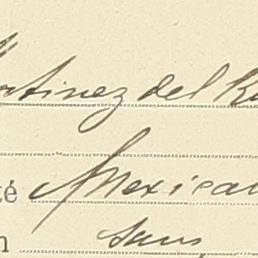 Martinez del R
té Mexican
n sans